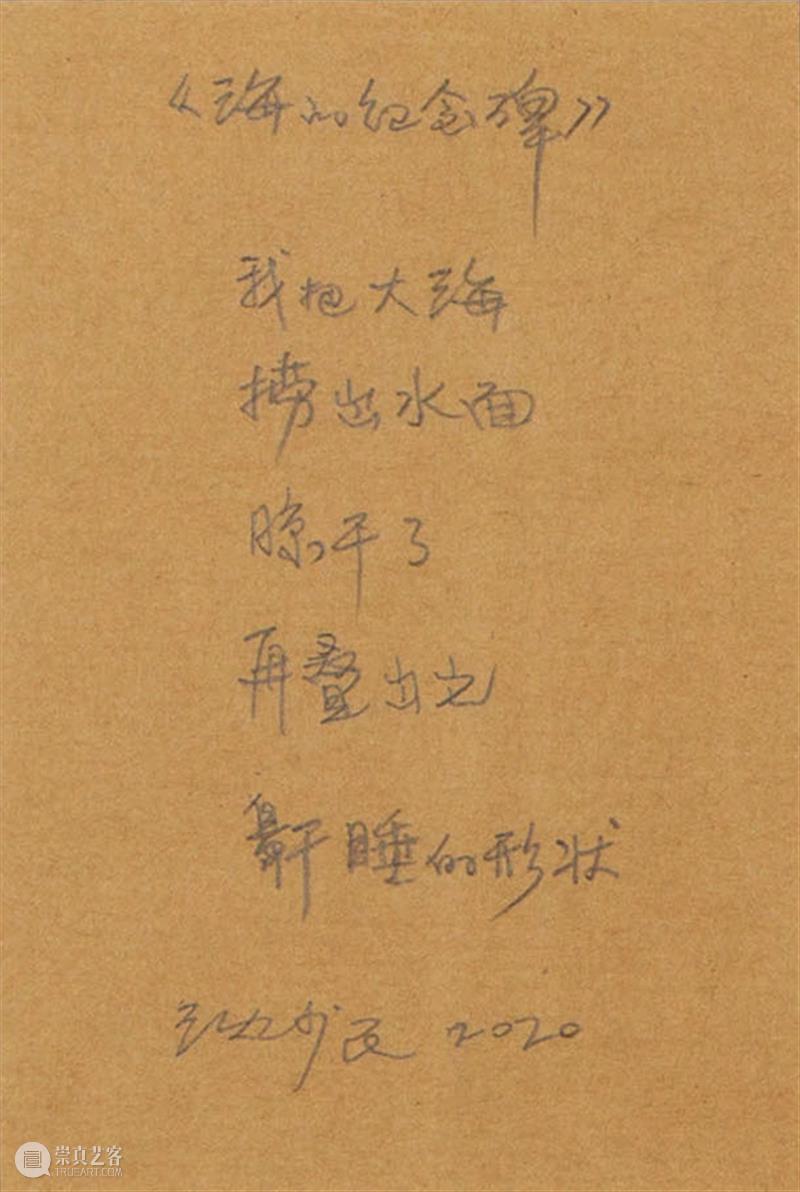 《海的纪念碑》
我把大海
捞出水面
晾干了
再叠出它
鼾睡的形状
沈少民 2020
崇真艺客
TRUEART.COM